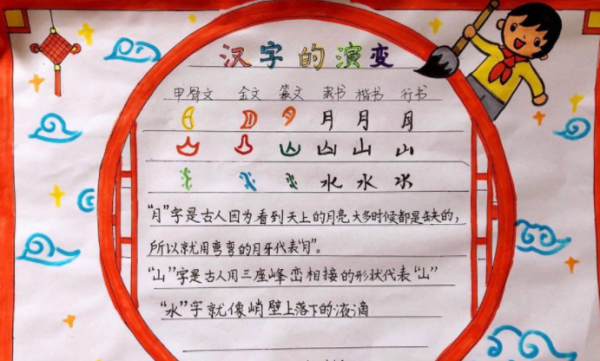 汉字的演变
甲骨文 金文 篆文 隶书 楷书 行书
月 月 月
山 山 山
水 水 水
“月”字是古人因为看到天上的月亮大多时候都是缺的，
所以就用弯弯的月牙代表“月”。
“山”字是古人用三座峰峦相接的形状代表“山”
“水”字就像峭壁上落下的液滴